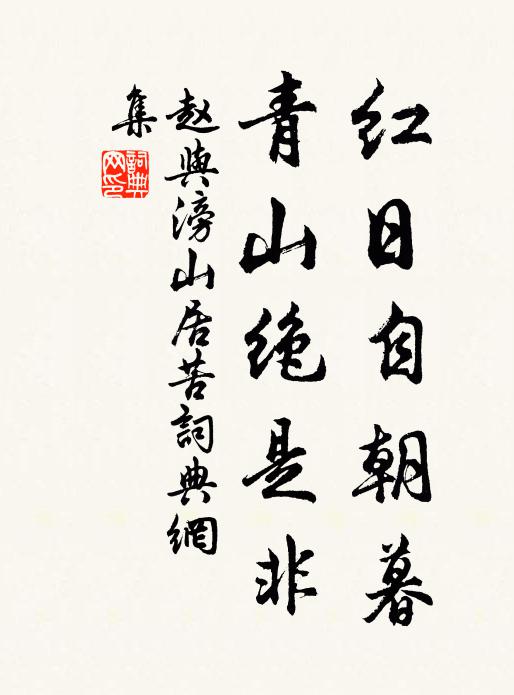 红日自朝暮
青山绝是非
赵與滂山居苦詞典網
集
詞典网印